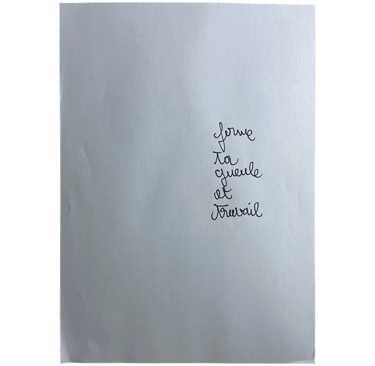 ferme
Ta
gueule
et
Travail